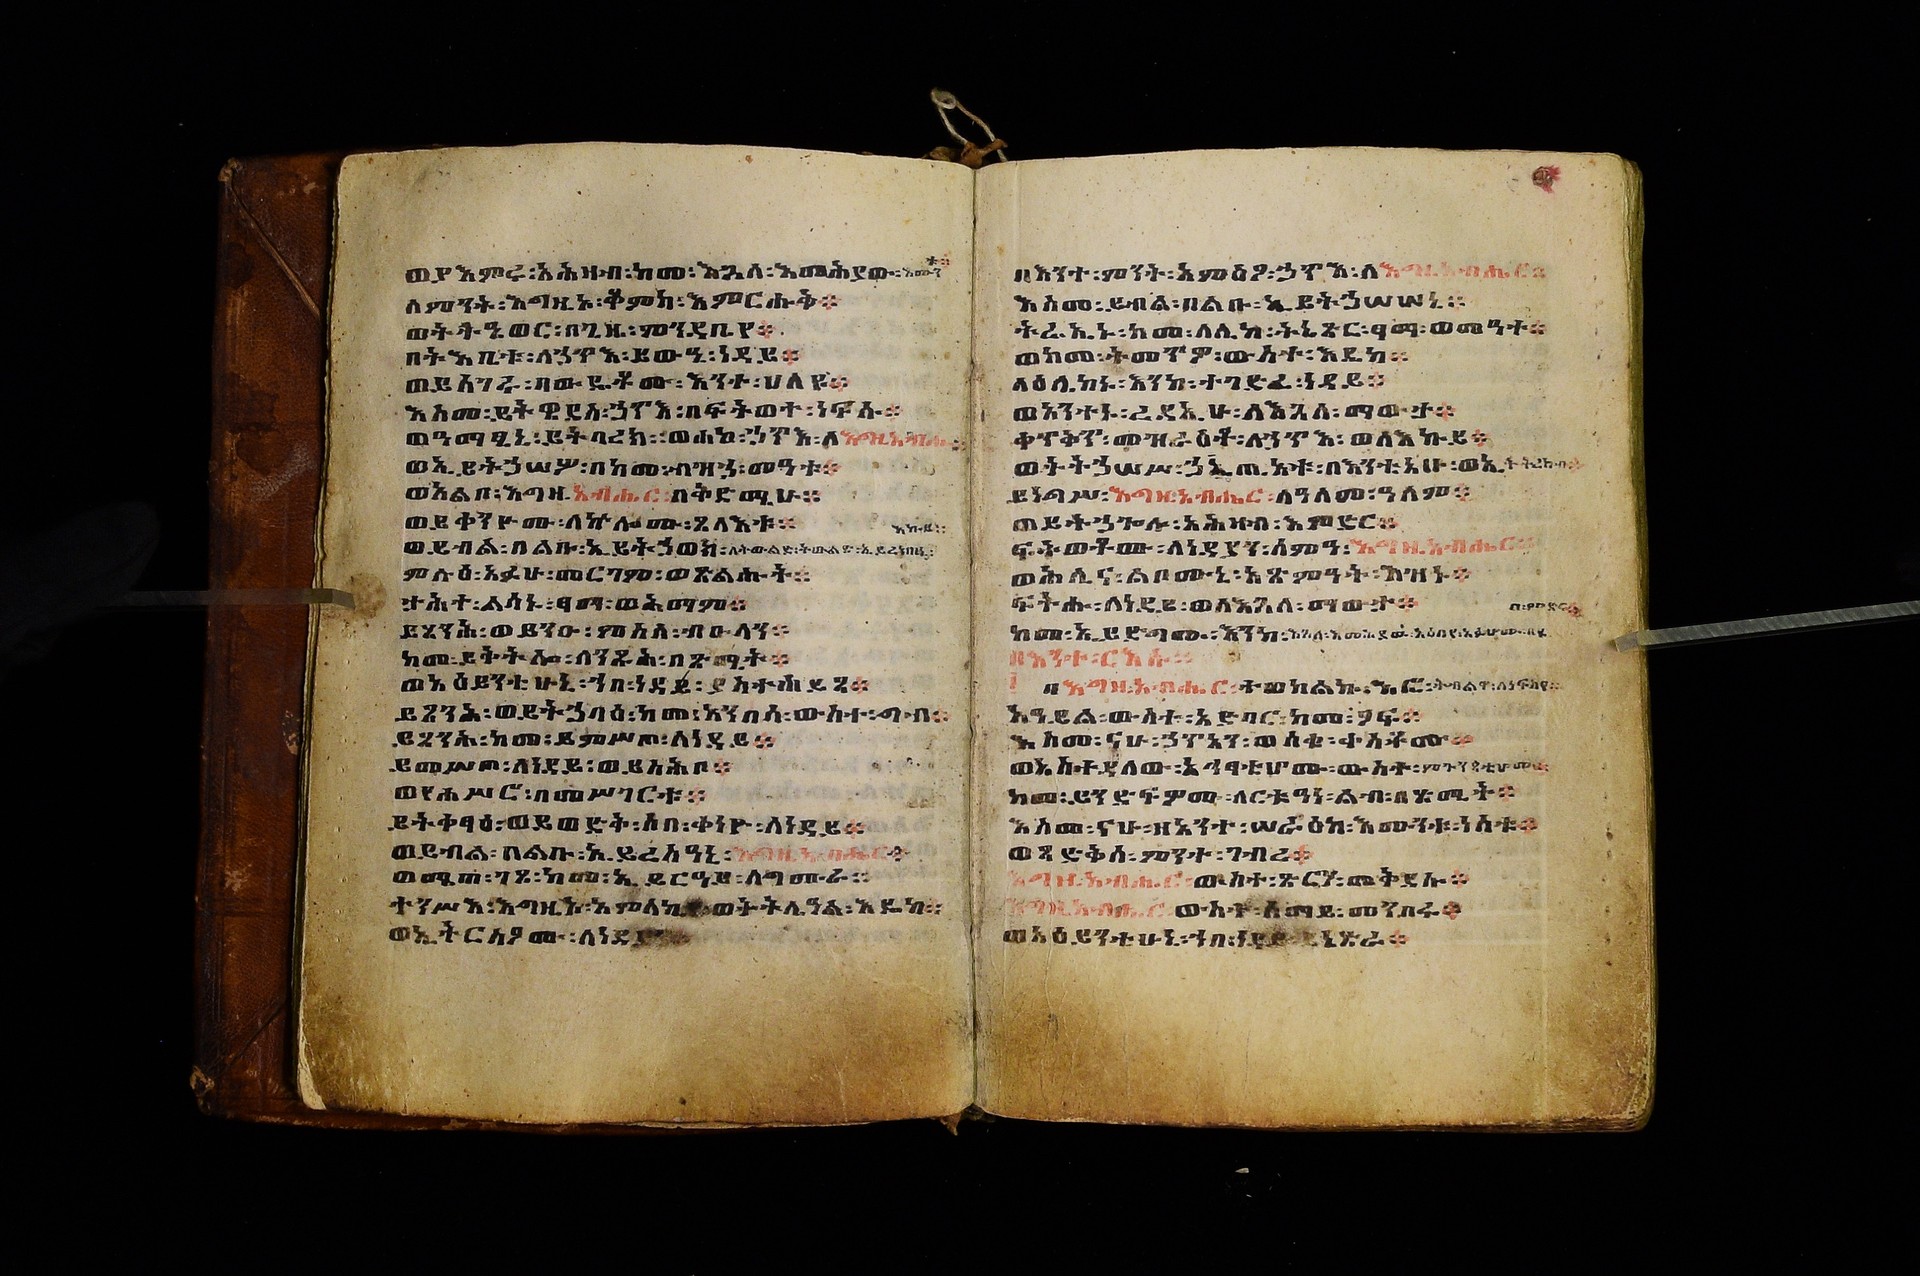 ወያእምሩ፡አሕዛብ፡ከመ፡እጓለ፡እመሕያው፡እሙንቱ።
ለምንት፡እግዚኦ፡ቆምከ፡እምርሑቅ።
ወትትዔወር፡በጊዜ፡ምንዳቤየ።
በትእቢቱ፡ለኃጥእ፡ይውዒ፡ነዳይ።
ወይሰገሩ፡በውዴቶሙ፡እንተ፡ሀለዩ።
እስመ፡ይትዌደስ፡ኃጥእ፡በፍትወተ፡ነፍሱ።
ወዓማፂኒ፡ይትባረክ።ወሐኮ፡ኃጥእ፡ለእግዚአብሔር።
ወኢይትኃሠሦ፡በከመ፡ብዝኃ፡መዓቱ።
ወአልቦ፡እግዚአብሔር፡በቅድሜሁ።
ወይቀንዮሙ፡ለኵሎሙ፡ጸላእቱ።
ወይብል፡በልቡ፡ኢይትኃወክ፡ለትውልደ፡ትውልድ፡ኢይረክበኒ፡እኩይ።
ምሉዕ፡አፉሁ፡መርገም፡ወጽልሑት።
ታሕተ፡ልሳኑ፡ፃማ፡ወሕማም።
ይጸንሕ፡ወይንዑ፡ምስለ፡ብዑላን።
ከመ፡ይቅትሎ፡ለንጹሕ፡በጽሚት።
ወአዕይንቲሁኒ፡ኀበ፡ነዳይ፡ያስተሐይጻ።
ይጸንሕ፡ወይትኃባዕ፡ከመ፡አንበሳ፡ውስተ፡ግብ።
ይጸንሕ፡ከመ፡ይምሥጦ፡ለነዳይ።
ይመሥጦ፡ለነዳይ፡ወይስሕቦ።
ወየሐሥሮ፡በመሥገርቱ።
ይትቀፃዕ፡ወይወድቅ፡ሶበ፡ቀነዮ፡ለነዳይ።
ወይብል፡በልቡ፡ኢይሬስዓኒ፡እግዚአብሔር።
ወሜጠ፡ገጾ፡ከመ፡ኢይርዓይ፡ለግሙራ።
ተንሥእ፡እግዚኦ፡አምላክየ፡ወትትሌዓል፡እዴከ።
ወኢትርስዖሙ፡ለነዳያን
በእንተ፡ምንት፡አምዕዖ፡ኃጥእ፡ለእግዚአብሔር።
እስመ፡ይብል፡በልቡ፡ኢይትኃሠሠኒ።
ትሬኢኑ፡ከመ፡ለሊከ፡ትኔጽር፡ፃማ፡ወመዓተ።
ወከመ፡ትመጥዎ፡ውስተ፡እዴከ።
ላዕሌከኑ፡እንከ፡ተገድፈ፡ነዳይ።
ወአንተኑ፡ረዳኢሁ፡ለእጓለ፡ማውታ።
ቀጥቅጥ፡መዝራዕቶ፡ለኃጥእ፡ወለእኩይ።
ወትትኃሠሥ፡ኃጢአቱ፡በእንቲአሁ፡ወኢትትረከብ።
ይነግሥ፡እግዚአብሔር፡ለዓለመ፡ዓለም።
ወይትኃጐሉ፡አሕዛብ፡እምድር።
ፍትወቶሙ፡ለነዳያን፡ሰምዓ፡እግዚአብሔር።
ወሕሊና፡ልቦሙኒ፡አጽምዓት፡እዝኑ።
ፍትሐ፡ለነዳይ፡ወለእጓለ፡ማውታ።
ከመ፡ኢይድግሙ፡እንከ፡እጓለ፡እመሕያው፡አዕብዮ፡አፉሆሙ፡በዲበ፡ምድር።
በእንተ፡ርእሱ።
በእግዚአብሔር፡ተወከልኩ፡እፎ፡ትብልዋ፡ለነፍስየ።
እዓይል፡ውስተ፡አድባር፡ከመ፡ዖፍ።
እስመ፡ናሁ፡ኃጥአን፡ወሰቁ፡ቀስቶሙ።
ወአስተዳለው፡አኀፃቲሆሙ፡ውስተ፡ምጕንጳቲሆሙ።
ከመ፡ይንድፍዎሙ፡ለርቱዓነ፡ልብ፡በጽሚት።
እስመ፡ናሁ፡ዘአንተ፡ሠራዕከ፡እሙንቱ፡ነሠቱ።
ወጻድቅሰ፡ምንተ፡ገብረ።
እግዚአብሔር፡ውስተ፡ጽርሐ፡መቅደሱ።
እግዚአብሔር፡ውስተ፡ሰማይ፡መንበሩ።
ወአዕይንቲሁኒ፡ኀበ፡ነዳይ፡ይኔጽራ።